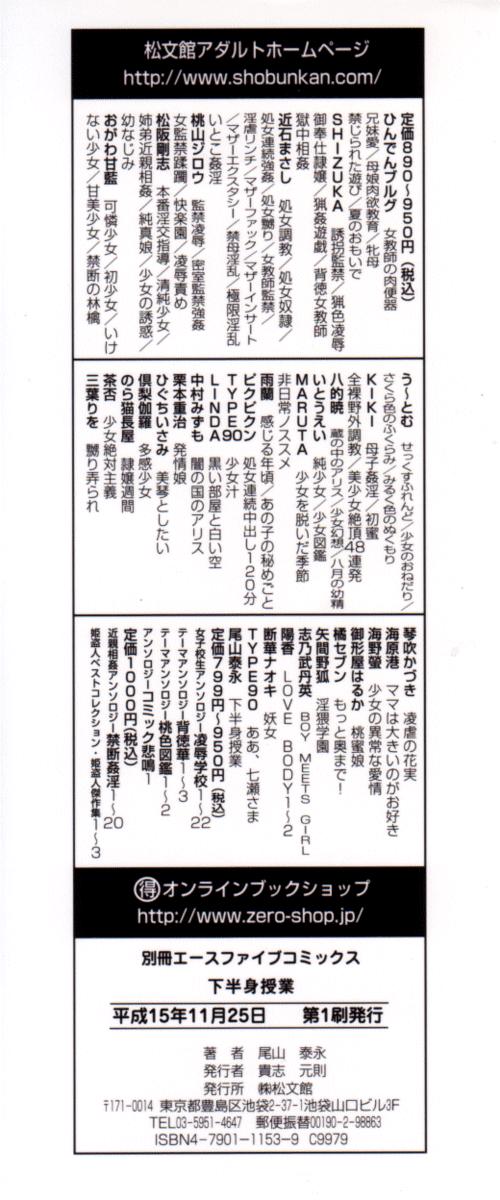 松文館アダルトホームページ
http://www.shobunkan.com/
定価890〜950円(税込)
ひんでんブルグ 女教師の肉便器
兄妹愛/母娘肉欲教育/牝母
禁じられた遊び/夏のおもいで
SHIZUKA 誘拐監禁/猟色凌辱
御奉仕隷嬢/猟姦遊戯/背徳女教師
獄中相姦
近石まさし 処女調教/処女奴隷/
処女連続強姦/処女嬲り/女教師監禁/
淫虐リンチ/マザーファック/マザーインサート
/マザーエクスタシー/禁母淫乱/極限淫乱
いとこ姦淫
桃山ジロウ 監禁凌辱/密室監禁強姦
女監禁蹂躙/快楽園/凌辱責め
松阪剛志 本番淫交指導/清純少女/
姉弟近親相姦/純真娘/少女の誘惑/
幼なじみ
おがわ甘藍 可憐少女/初少女/いけ
ない少女/甘美少女/禁断の林檎
う〜とむ せっくすふれんど/少女のおねだり/
さくら色のふくらみ/みるく色のぬくもり
KIKI 母子姦淫/初蜜
全裸野外調教/美少女絶頂48連発
八的暁 蔵の中のアリス/少女幻想/八月の幼精
いとうえい 純少女/少女図鑑
MARUTA 少女を脱いだ季節
非日常ノススメ
雨蘭 感じる年頃/あの子の秘めごと
ピクピクン 処女連続中出し120分
TYPE90 少女汁
LINDA 黒い部屋と白い空
中村みずも 闇の国のアリス
栗本重治 発情娘
ひぐちいさみ 美琴としたい
倶梨伽羅 多感少女
のら猫長屋 隷嬢週間
茶否 少女絶対主義
三葉りを 嬲り弄られ
琴吹かづき 凌虐の花実
海原港 ママは大きいのがお好き
海野螢 少女の異常な愛情
御形屋はるか 桃蜜娘
橘セブン もっと奥まで!
矢間野狐 淫猥学園
志乃武丹英 BOY MEETS GIRL
陽香 LOVE BODY1〜2
断華ナオキ 妖女
TYPE90 ああ、七瀬さま
尾山泰永 下半身授業
定価799円〜950円(税込)
女子校生アンソロジー凌辱学校1〜22
テーマアンソロジー背徳華1〜3
テーマアンソロジー桃色図鑑1〜2
アンソロジーコミック悲鳴1
定価1000円(税込)
近親相姦アンソロジー禁断姦淫1〜20
姫盗人ベストコレクション・姫盗人傑作集1〜3
得オンラインブックショップ
http://www.zero-shop.jp/
別冊エースファイブコミックス
下半身授業
平成15年11月25日 第1刷発行
著 者 尾山 泰永
発行者 貴志 元則
発行所 ㈱松文館
〒171-0014 東京都豊島区池袋2-37-1池袋山口ビル3F
TEL03-5951-4647 郵便振替00190-2-98863
ISBN4-7901-1153-9 C9979